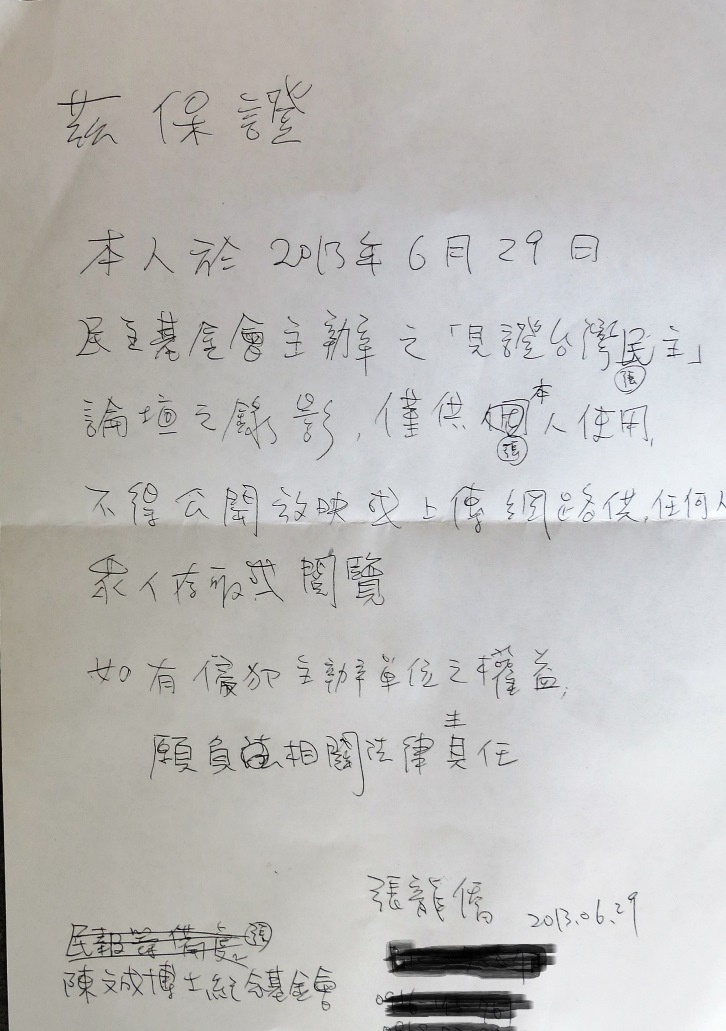 茲保證
本人於 2013年 6月 29日
民主基金會主辦之「見證台灣民主」
張
論壇之錄影,僅供本人使用,
張
不得公開放映或上傳網路供,任何人
眾人存取或閱覽
如有侵犯主辦單位之權益,
願負相關法律責任
張龍僑 2013.06.29
民報籌備處 張
陳文成博士紀念基金會